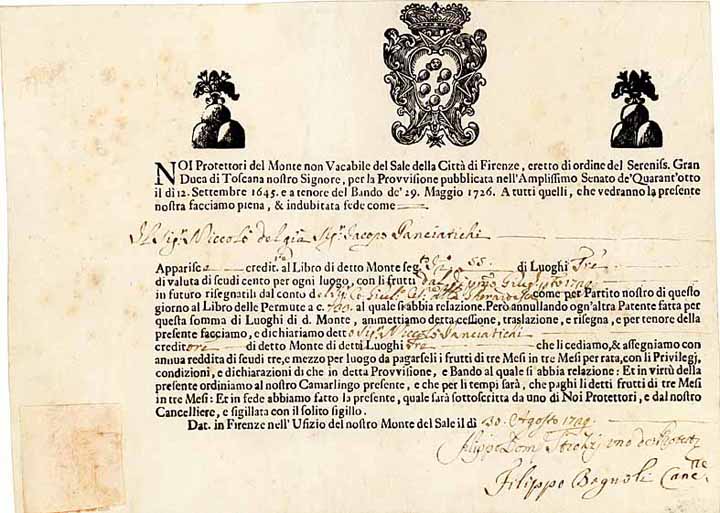 NOI Protettori del Monte non Vacabile del Sale della Città di Firenze, eretto di ordine del Sereniss. Gran
Duca di Toscana nostro Signore, per la Provvisione pubblicata nell'Amplissimo Senato de' Quarant'otto
il dì 12. Settembre 1645. e a tenore del Bando de' 29. Maggio 1726. A tutti quelli, che vedranno la presente
nostra facciamo piena, & indubitata fede come
Il Sigr. Niccolò del già Sigr. Jacopo Panciatichi
Apparisce credit. al Libro di detto Monte seg. 55 di Luoghi Tre
di valuta di scudi cento per ogni luogo, con li frutti
in futuro risegnatili dal conto de come per Partito nostro di questo
giorno al Libro delle Permute a c. 700. al quale si abbia relazione. Però annullando ogn'altra Patente fatta per
questa somma di Luoghi di d. Monte, ammettiamo detta cessione, traslazione, e risegna, e per tenore della
presente facciamo, e dichiariamo detto Sigr. Niccolò Panciatichi
creditore di detto Monte di detti Luoghi Tre che li cediamo, & assegniamo con
annua reddita di scudi tre, e mezzo per luogo da pagarseli i frutti di tre Mesi in tre Mesi per rata, con li Privilegj,
condizioni, e dichiarazioni di che in detta Provvisione, e Bando al quale si abbia relazione: Et in virtù della
presente ordiniamo al nostro Camarlingo presente, e che per li tempi sarà, che paghi li detti frutti di tre Mesi
in tre Mesi: Et in fede abbiamo fatto la presente, quale sarà sottoscritta da uno di Noi Protettori, e dal nostro
Cancelliere, e sigillata con il solito sigillo.
Dat. in Firenze nell'Ufizio del nostro Monte del Sale il dì 30. Agosto
Filippo Dom. Strozzi uno de Protett.
Filippo Bagnoli Canc.re